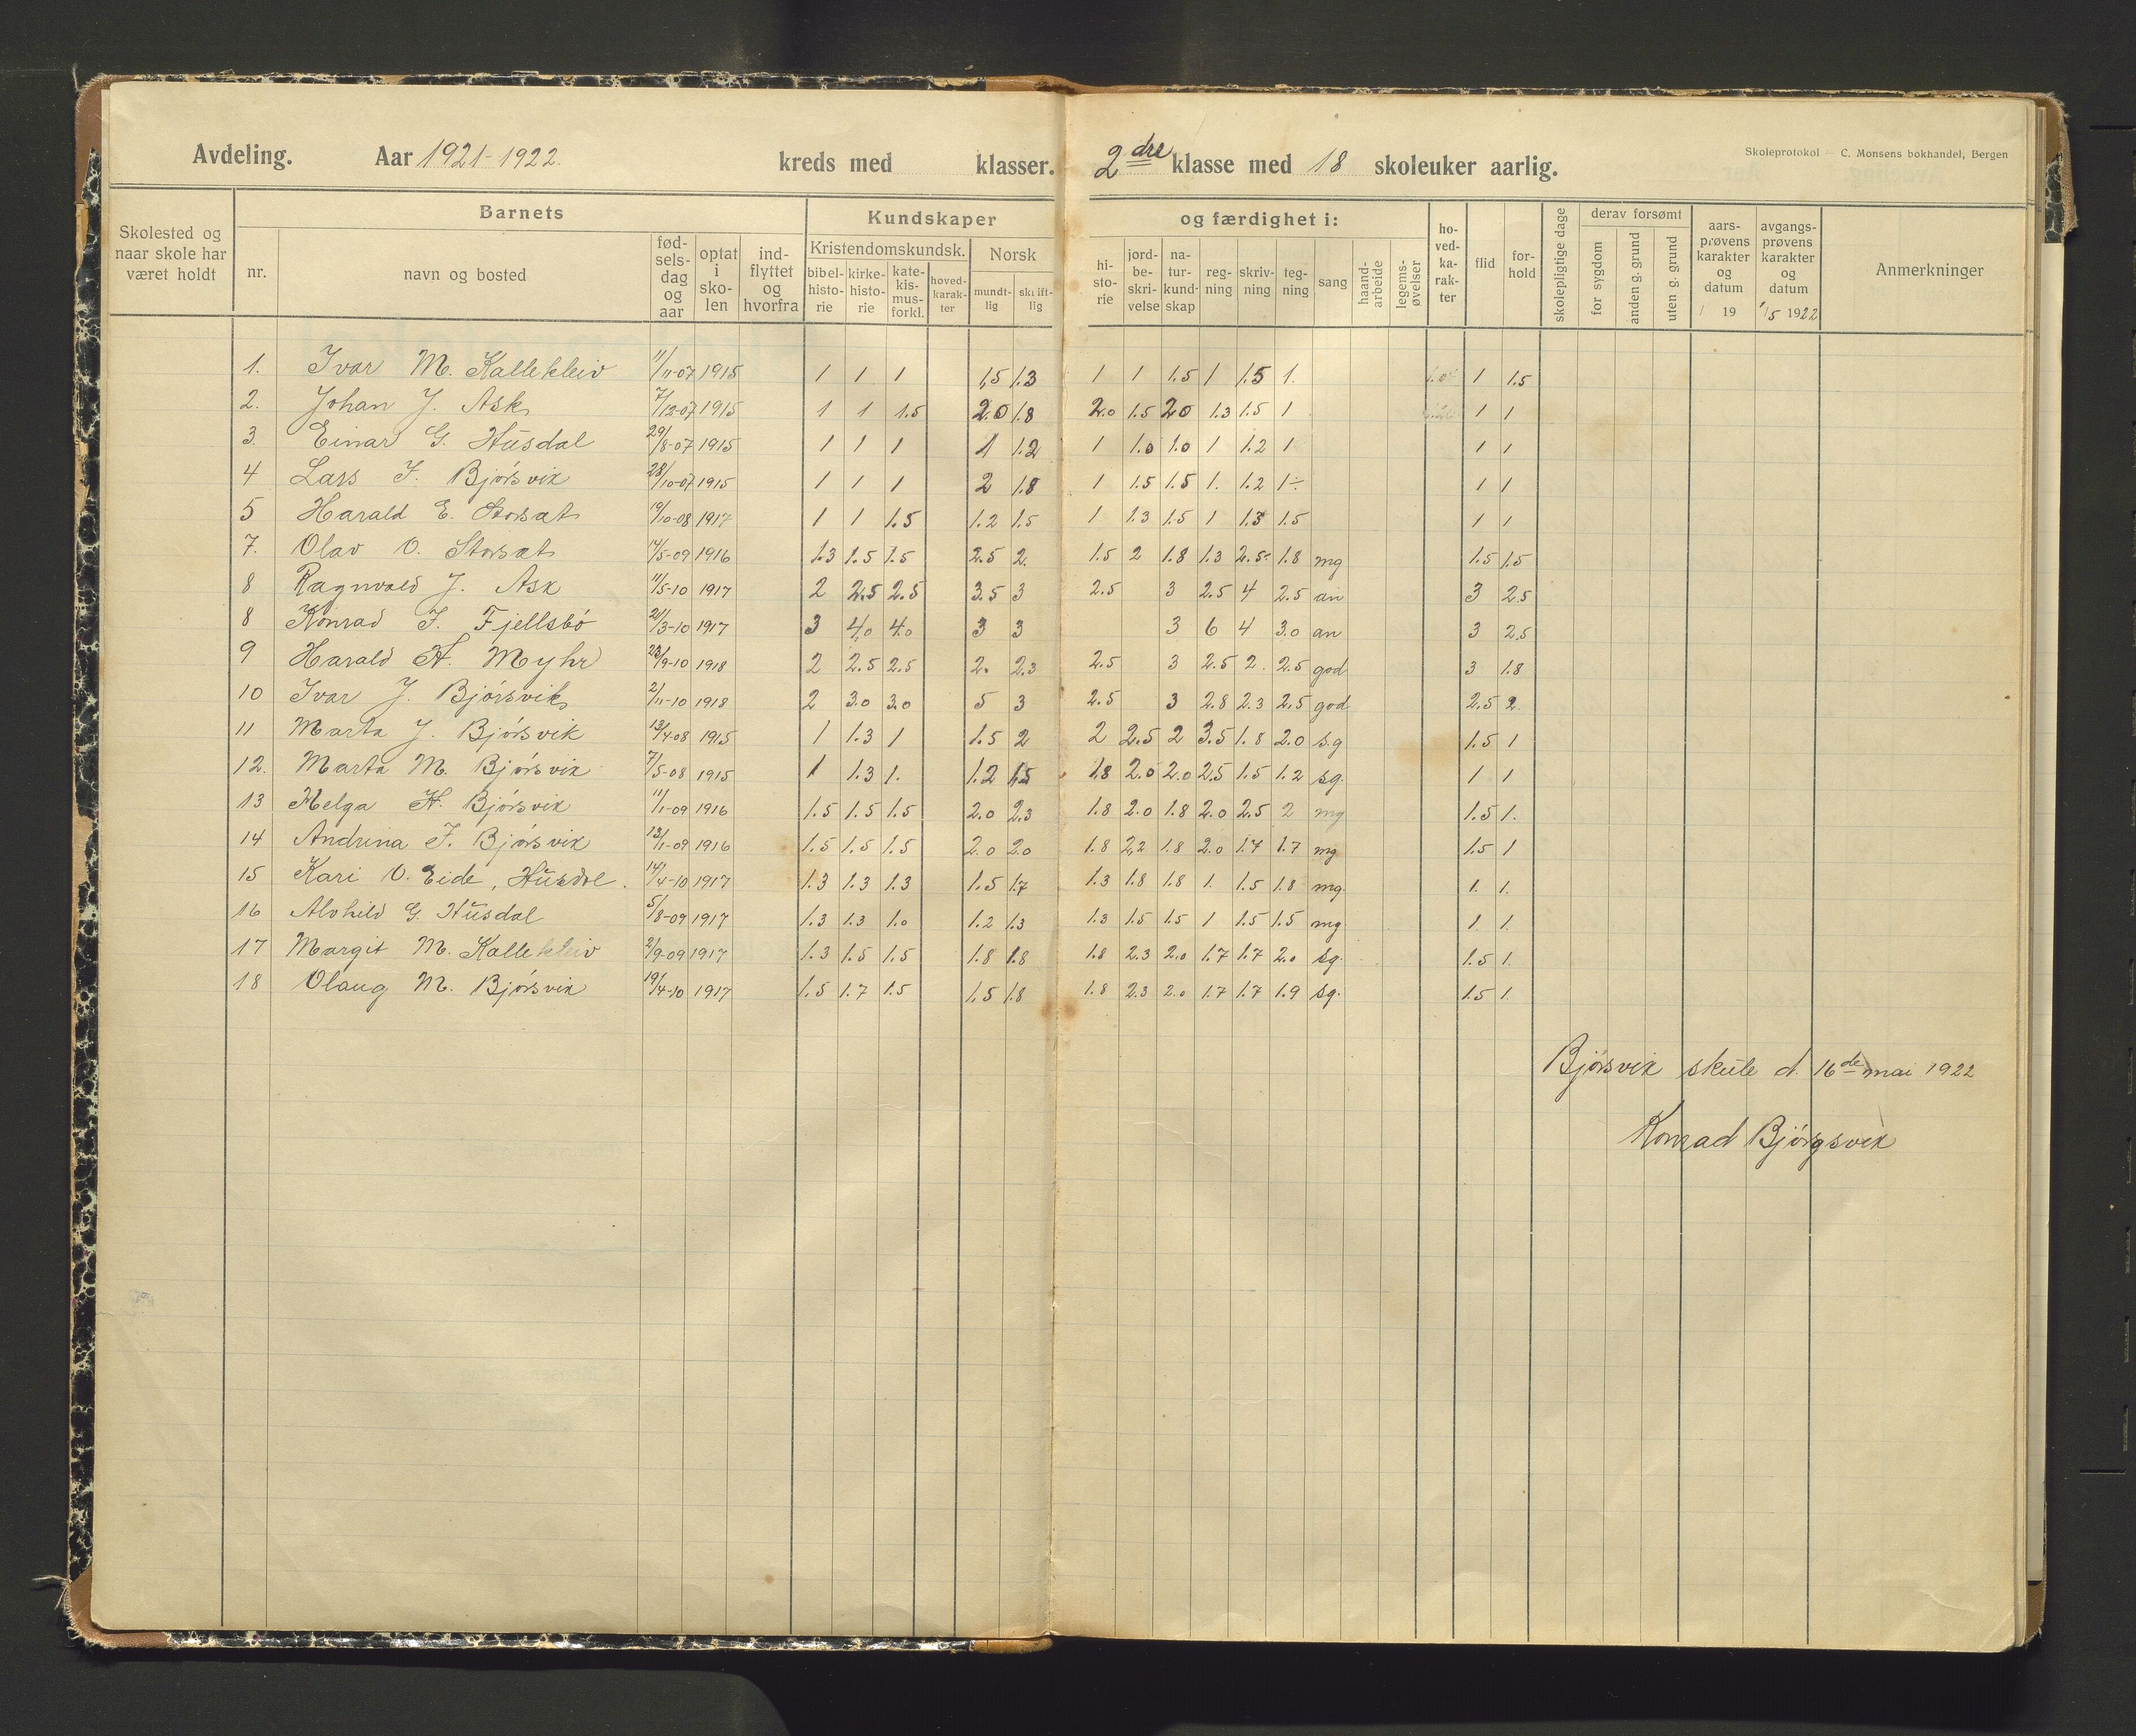 Avdeling. Aar 1921-1922. kreds med klasser. 2dre klasse med 18 skoleuker aarlig.
Skoleprotokol — C. Monsens bokhandel, Bergen
Skolested og naar skole har været holdt
Barnets
nr. navn og bosted fødselsdag og aar optat i skolen indflyttet og hvorfra
Kundskaper og færdighet i:
Kristendomskundsk. Norsk
bibelhistorie kirkehistorie katekismusforkl. hovedkarakter mundtlig skriftlig
historie jordbeskrivelse naturkundskap regning skrivning tegning sang haandarbeide legemsøvelser
hovedkarakter flid forhold skolepligtige dage
derav forsømt
for sygdom anden g. grund uten g. grund
aarsprøvens karakter og datum / 19
avgangsprøvens karakter og datum 1/5 1922
Anmerkninger
1. Ivar M. Kallekleiv 11/11-07 1915 1 1 1 1,5 1.3 1 1 1.5 1 1.5 1. 1.0 1 1.5
2. Johan J. Ask 7/12-07 1915 1 1 1.5 2.0 1.8 2.0 1.5 2.0 1.3 1.5 1 1 1
3. Einar G. Húsdal 29/8-07 1915 1 1 1 1 1.2 1 1.0 1.0 1 1.2 1 1 1
4 Lars J. Bjórsvik 28/10-07 1915 1 1 1 2 1.8 1 1.5 1.5 1. 1.2 1÷ 1 1
5 Harald E. Storsæt 19/10-08 1917 1 1 1.5 1.2 1.5 1 1.3 1.5 1 1.3 1.5 1 1
7. Olav O. Storsæt 14/5-09 1916 1.3 1.5 1.5 2.5 2. 1.5 2 1.8 1.3 2.5 1.8 mg 1.5 1.5
8 Ragnvald J. Ask 11/5-10 1917 2 2.5 2.5 3.5 3 2.5 3 2.5 4 2.5 an 3 2.5
8 Konrad J. Fjellsbó 21/3-10 1917 3 4,0 4.0 3 3 3 6 4 3.0 an 3 2.5
9 Harald A. Myhr 23/9-10 1918 2 2.5 2.5 2. 2.3 2.5 3 2.5 2. 2.5 god 3 1.8
10 Ivar J. Bjórsvik 2/11-10 1918 2 3.0 3.0 5 3 2.5 3 2.8 2.3 2.5 god 2.5 2.
11 Marta J. Bjórsvik 13/4-08 1915 1 1.3 1 1.5 2 2 2.5 2 3.5 1.8 2.0 s.g 1.5 1
12. Marta M. Bjórsvik 7/5-08 1915 1 1.3 1. 1.2 1.5 1.8 2.0 2.0 2.5 1.5 1.2 sg. 1 1
13 Helga H. Bjórsvik 11/1-09 1916 1.5 1.5 1.5 2.0 2.3 1.8 2.0 1.8 2.0 2.5 2 mg 1.5 1.
14 Andrina J. Bjórsvik 13/1-09 1916 1.5 1.5 1.5 2.0 2.0 1.8 2,2 1.8 2.0 1.7 1.7 mg 1.5 1
15 Kari O. Eide, Húsdal. 14/4-10 1917 1.3 1.3 1.3 1.5 1.7 1.3 1.8 1.8 1. 1.5 1.8 mg. 1. 1.
16 Alvhild G. Húsdal 5/8-09 1917 1.3 1.3 1.0 1.2 1.3 1.3 1.5 1.5 1 1.5 1.5 mg. 1. 1.
17 Margit M. Kallekleiv 2/9-09 1917 1.3 1.5 1.5 1.8 1.8 1.8 2.3 2.0 1.7 1.7 2.0 sg. 1.5 1.
18 Olaug M. Bjórsvik 19/4-10 1917 1.5 1.7 1.5 1.5 1.8 1.8 2.3 2.0 1.7 1.7 1.9 sg. 1.5 1.
Bjórsvik skúle d. 16de mai 1922
Konrad Bjórgsvik